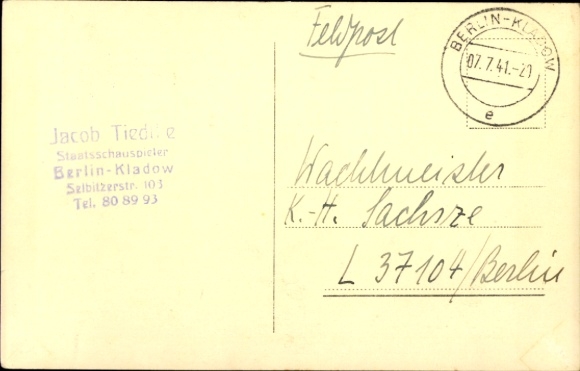 Feldpost
BERLIN-KLADOW
07.7.41.-21
e
Jacob
Staatsschauspieler
Berlin-Kladow
Selbitzerstr. 103
Tel. 80 89 93
Wachtmeister
K.-H. Sachsze
L 37104/Berlin